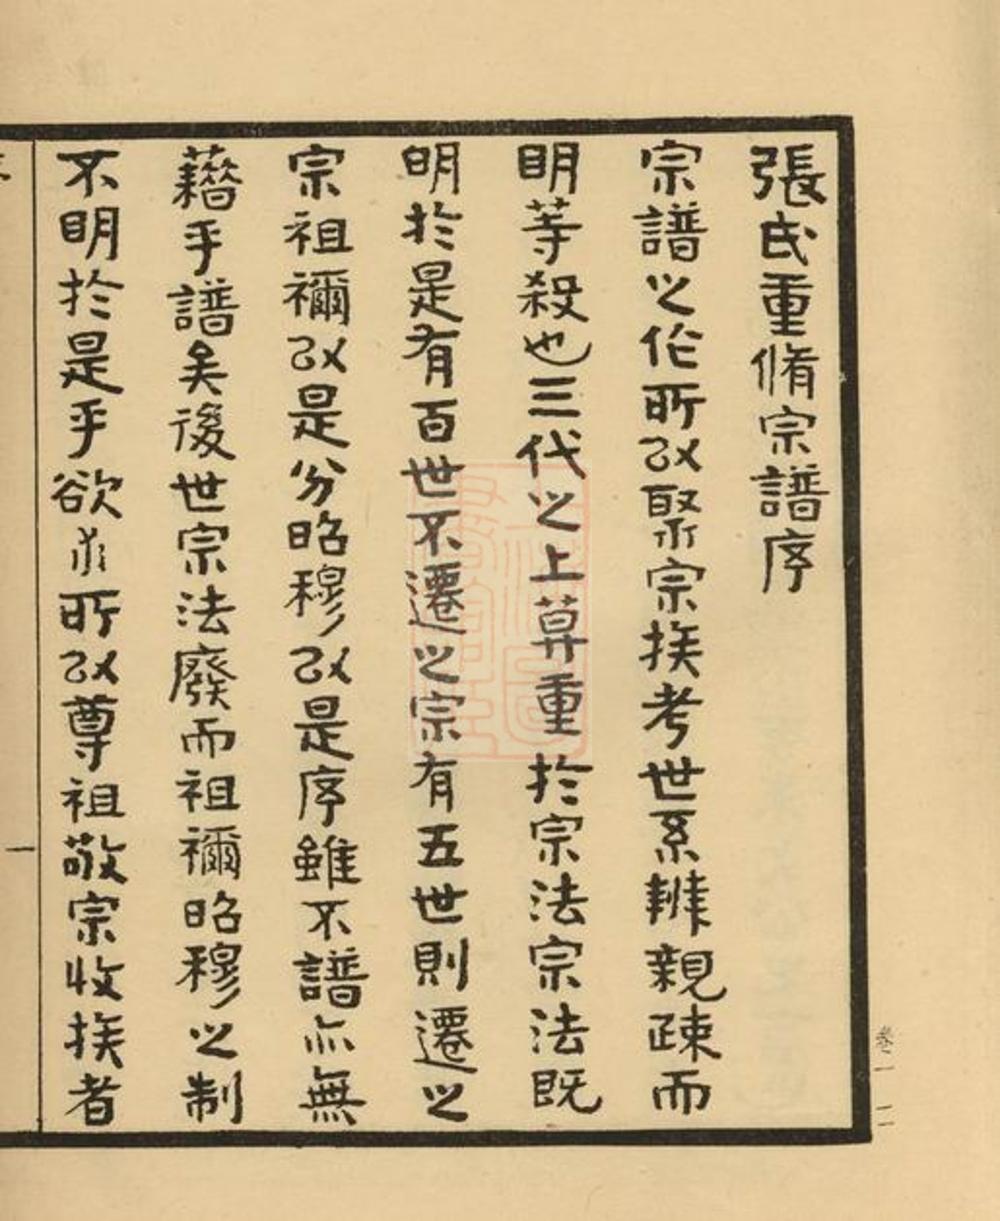 張氏重脩宗譜序
宗譜之作所㠯聚宗族考世系辨親疎而
明等殺也三代之上莫重於宗法宗法既
明於是有百世不遷之宗有五世則遷之
宗祖禰㠯是分昭穆㠯是序雖不譜亦無
藉乎譜矣後世宗法廢而祖禰昭穆之制
不明於是乎欲求所㠯尊祖敬宗收族者
卷一
一